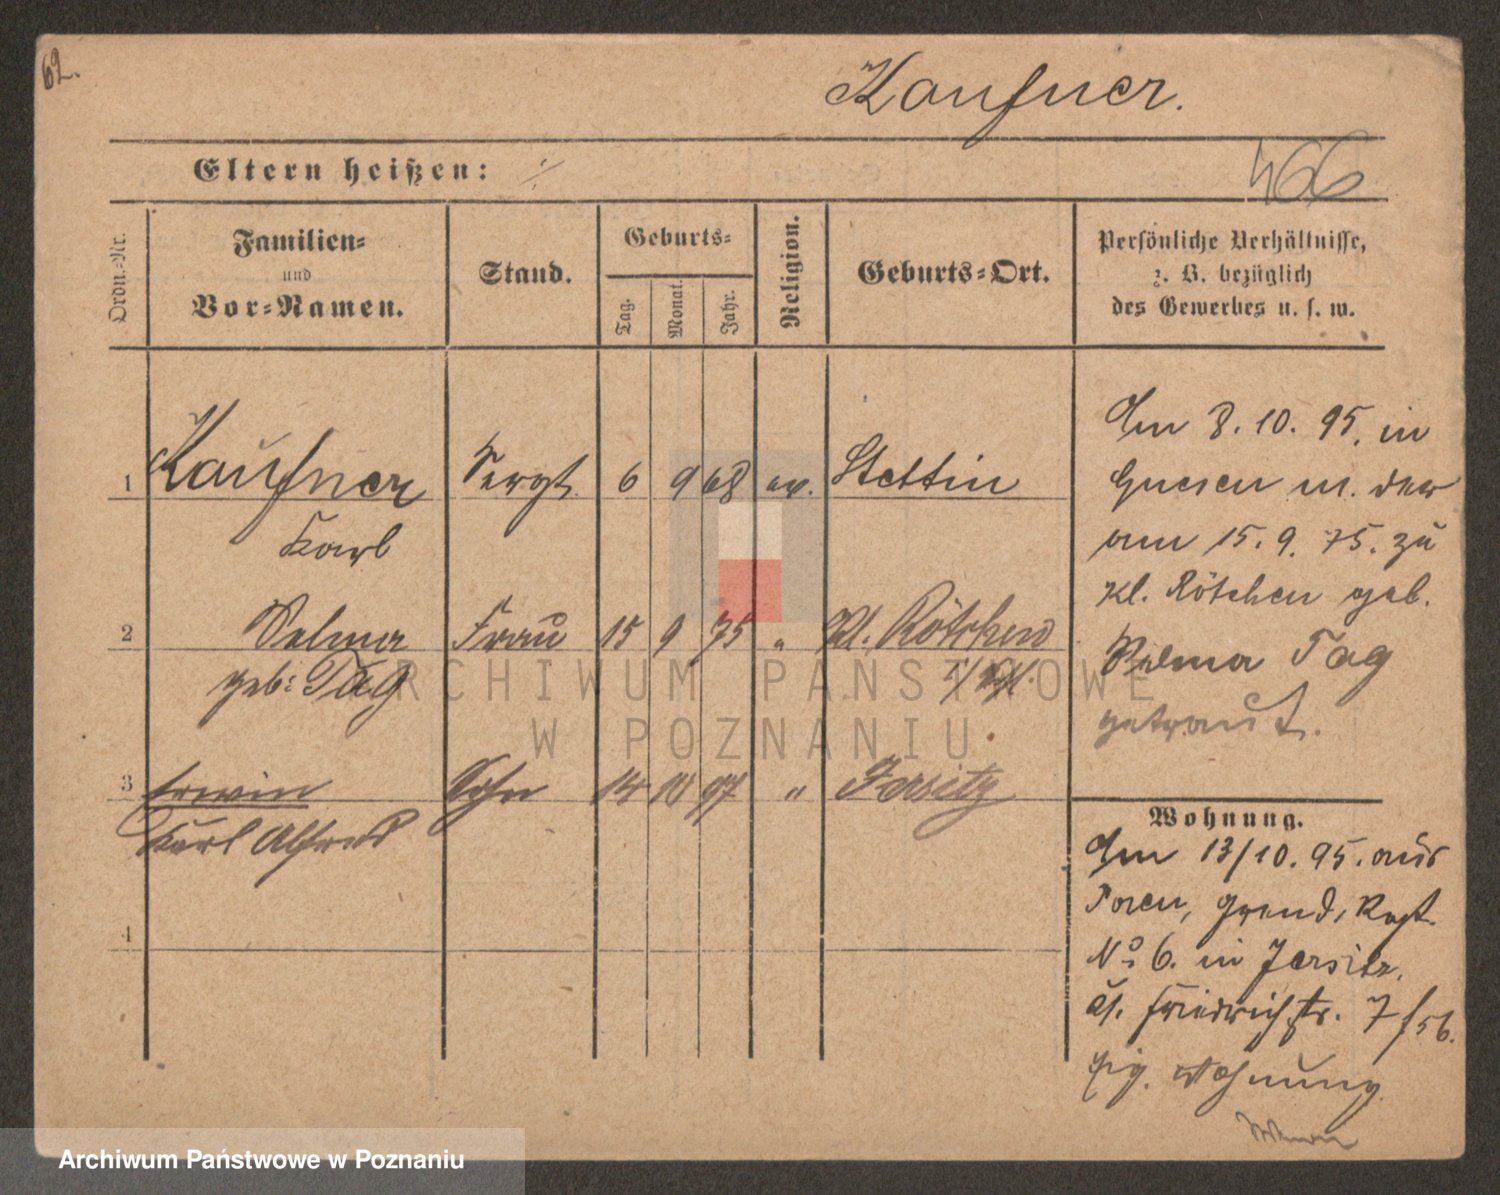 62.
Kaufner.
Eltern heißen: ./.
466
Ordn.-Nr.
Familien-
und
Vor-Namen.
Stand.
Geburts-
Tag.
Monat.
Jahr.
Religion.
Geburts-Ort.
Persönliche Verhältnisse,
z. B. bezüglich
des Gewerbes u. s. w.
1 Kaufner Sergt. 6 9 68 ev. Stettin
Karl
2 Selma Frau 15 9 75 „ Kl. Rötchen
geb: Tag
3 Erwin Sohn 14 10 97 „ Jersitz
Karl Alfred
4
Am 8. 10. 95. in
Gnesen m. der
am 15. 9. 75. zu
Kl. Rötchen geb.
Selma Tag
getraut.
Wohnung.
Am 13/10. 95. aus
Posen, Grend. Rgt.
No 6. in Jersitz,
Friedrichstr. 7
Wohnung
ARCHIWUM PAŃSTWOWE
W POZNANIU
Archiwum Państwowe w Poznaniu